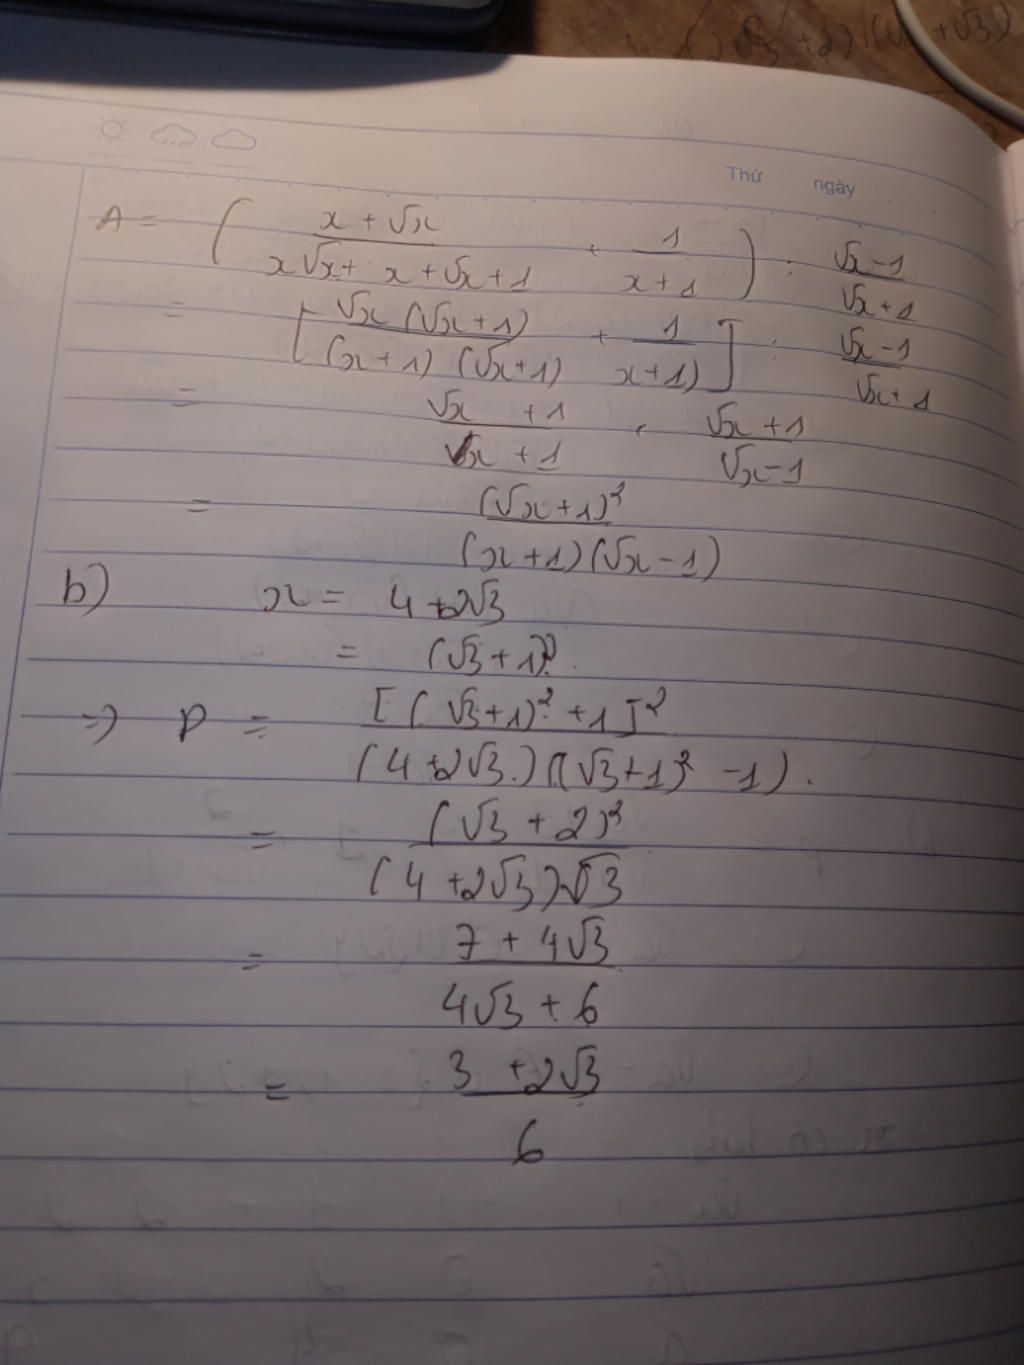 Thứ ngày
A = ( (x + √x)/(x√x + x + √x + 1) + 1/(x + 1) ) : (√x - 1)/(√x + 1)
= [ √x (√x + 1)/((x + 1) (√x + 1)) + 1/(x + 1) ] : (√x - 1)/(√x + 1)
= (√x + 1)/(√x + 1) . (√x + 1)/(√x - 1)
= (√x + 1)²/((x + 1)(√x - 1))
b) x = 4 + 2√3
= (√3 + 1)².
=> P = [(√3 + 1)² + 1]²/((4 + 2√3)((√3 + 1)² - 1)).
= (√3 + 2)²/((4 + 2√3)√3)
= (7 + 4√3)/(4√3 + 6)
= (3 + 2√3)/6